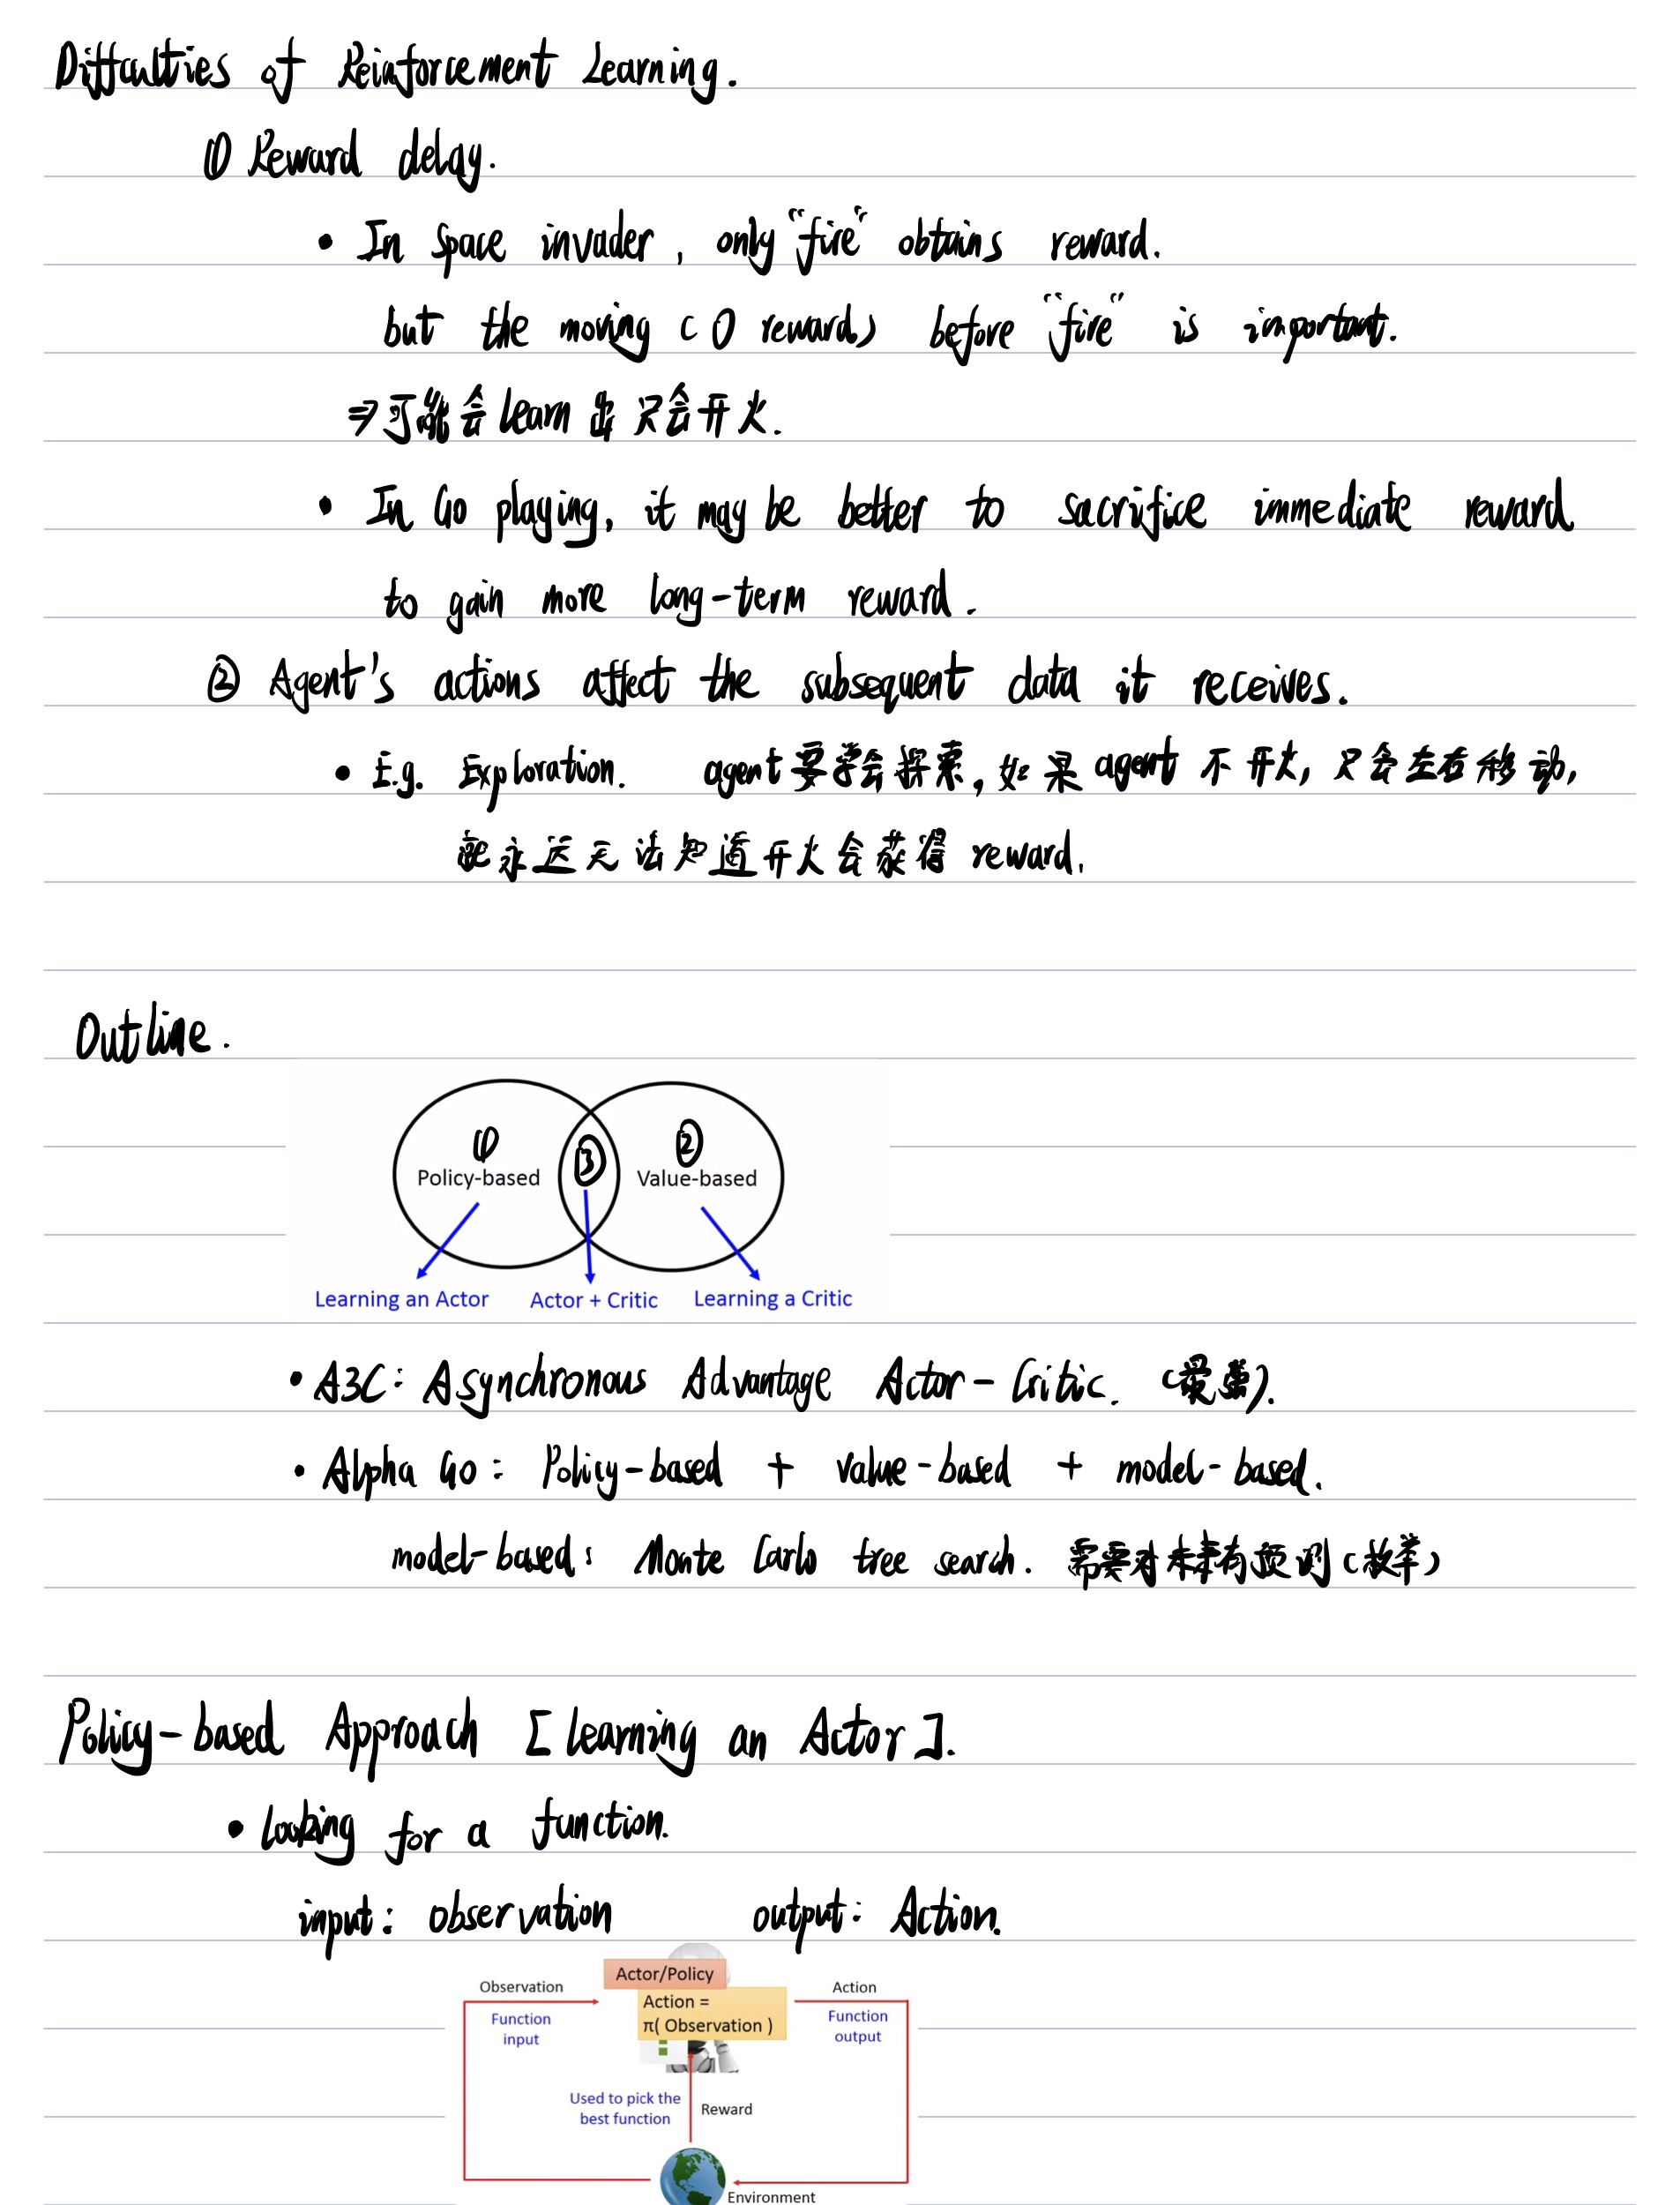 Difficulties of Reinforcement Learning.
① Reward delay.
• In Space invader, only "fire" obtains reward.
but the moving (0 reward) before "fire" is important.
⇒可能会learn出只会开火.
• In Go playing, it may be better to sacrifice immediate reward
to gain more long-term reward.
② Agent's actions affect the subsequent data it receives.
• E.g. Exploration. agent要学会探索, 如果agent不开火, 只会左右移动,
就永远无法知道开火会获得reward.
Outline.
① ③ ②
Policy-based Value-based
Learning an Actor Actor + Critic Learning a Critic
• A3C: Asynchronous Advantage Actor-Critic.
• Alpha Go: Policy-based + value-based + model-based.
model-based: Monte Carlo tree search. 需要对未来有预测(枚举)
Policy-based Approach [Learning an Actor].
• Looking for a function.
input: observation output: Action.
Observation Actor/Policy Action
Function input
Action = π( Observation )
Function output
Used to pick the best function
Reward
Environment